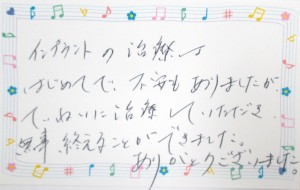 インプラントの治療は
はじめてで、不安もありましたが
ていねいに治療していただき
無事終えることができました。
ありがとうございました。